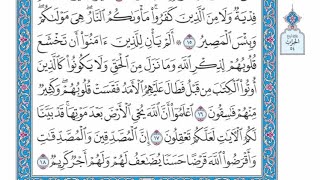 فِدْيَةٌ وَلَا مِنَ ٱلَّذِينَ كَفَرُوا۟ مَأْوَىٰكُمُ ٱلنَّارُ هِىَ مَوْلَىٰكُمْ
وَبِئْسَ ٱلْمَصِيرُ ١٥ أَلَمْ يَأْنِ لِلَّذِينَ ءَامَنُوٓا۟ أَن تَخْشَعَ
قُلُوبُهُمْ لِذِكْرِ ٱللَّهِ وَمَا نَزَلَ مِنَ ٱلْحَقِّ وَلَا يَكُونُوا۟ كَٱلَّذِينَ
أُوتُوا۟ ٱلْكِتَٰبَ مِن قَبْلُ فَطَالَ عَلَيْهِمُ ٱلْأَمَدُ فَقَسَتْ قُلُوبُهُمْ وَكَثِيرٌ
مِّنْهُمْ فَٰسِقُونَ ١٦ ٱعْلَمُوٓا۟ أَنَّ ٱللَّهَ يُحْىِ ٱلْأَرْضَ بَعْدَ مَوْتِهَا قَدْ بَيَّنَّا
لَكُمُ ٱلْءَايَٰتِ لَعَلَّكُمْ تَعْقِلُونَ ١٧ إِنَّ ٱلْمُصَّدِّقِينَ وَٱلْمُصَّدِّقَٰتِ
وَأَقْرَضُوا۟ ٱللَّهَ قَرْضًا حَسَنًا يُضَٰعَفُ لَهُمْ وَلَهُمْ أَجْرٌ كَرِيمٌ ١٨